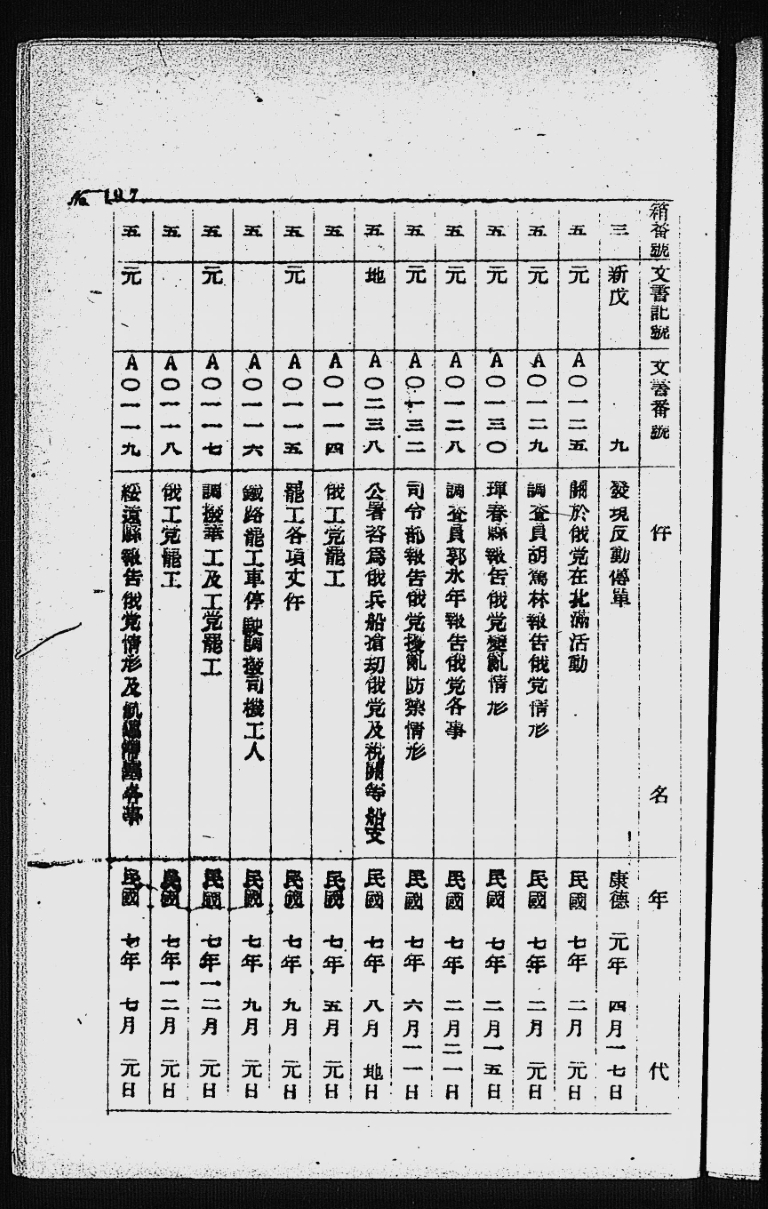 No 107
箱番號 文書記號 文書番號 件名 年代
三 新戊 九 發現反動傳單 康德 元年 四月一七日
五 元 A〇一二五 關於俄党在北滿活動 民國 七年 二月 元日
五 元 A〇一二九 調查員胡萬林報告俄党情形 民國 七年 二月 元日
五 元 A〇一三〇 琿春縣報告俄党變亂情形 民國 七年 二月一五日
五 元 A〇一二八 調查員郭永年報告俄党各事 民國 七年 二月二一日
五 元 A〇一三二 司令部報告俄党擾亂防禦情形 民國 七年 六月一一日
五 地 A〇二三八 公署咨爲俄兵船搶刧俄党及稅關等船支 民國 七年 八月 地日
五 A〇一一四 俄工党罷工 民國 七年 五月 元日
五 元 A〇一一五 罷工各項文件 民國 七年 九月 元日
五 A〇一一六 鐵路罷工車停駛調撥司機工人 民國 七年 九月 元日
五 元 A〇一一七 調撥華工及工党罷工 民國 七年一二月 元日
五 A〇一一八 俄工党罷工 民國 七年一二月 元日
五 元 A〇一一九 綏遠縣報告俄党情形及 各事 民國 七年 七月 元日